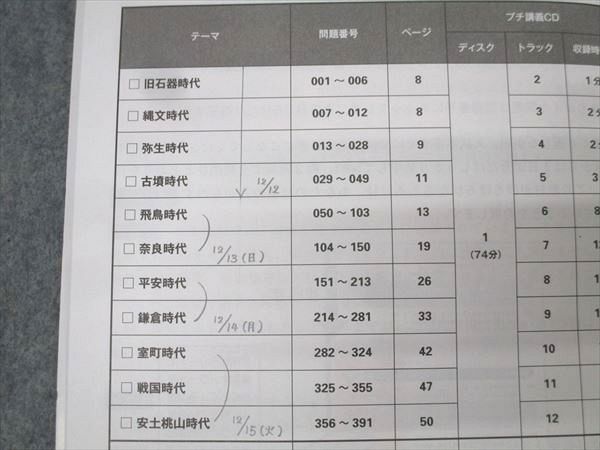 テーマ 問題番号 ページ プチ講義CD
ディスク トラック 収録時
□ 旧石器時代 001～006 8 2 1分
□ 縄文時代 007～012 8 3 2分
□ 弥生時代 013～028 9 4 2分
□ 古墳時代 12/12 029～049 11 5 3
□ 飛鳥時代 050～103 13 6 8
□ 奈良時代 12/13(日) 104～150 19 1 7
(74分)
□ 平安時代 151～213 26 8 1
□ 鎌倉時代 12/14(月) 214～281 33 9 1
□ 室町時代 282～324 42 10
□ 戦国時代 325～355 47 11
□ 安土桃山時代 12/15(火) 356～391 50 12